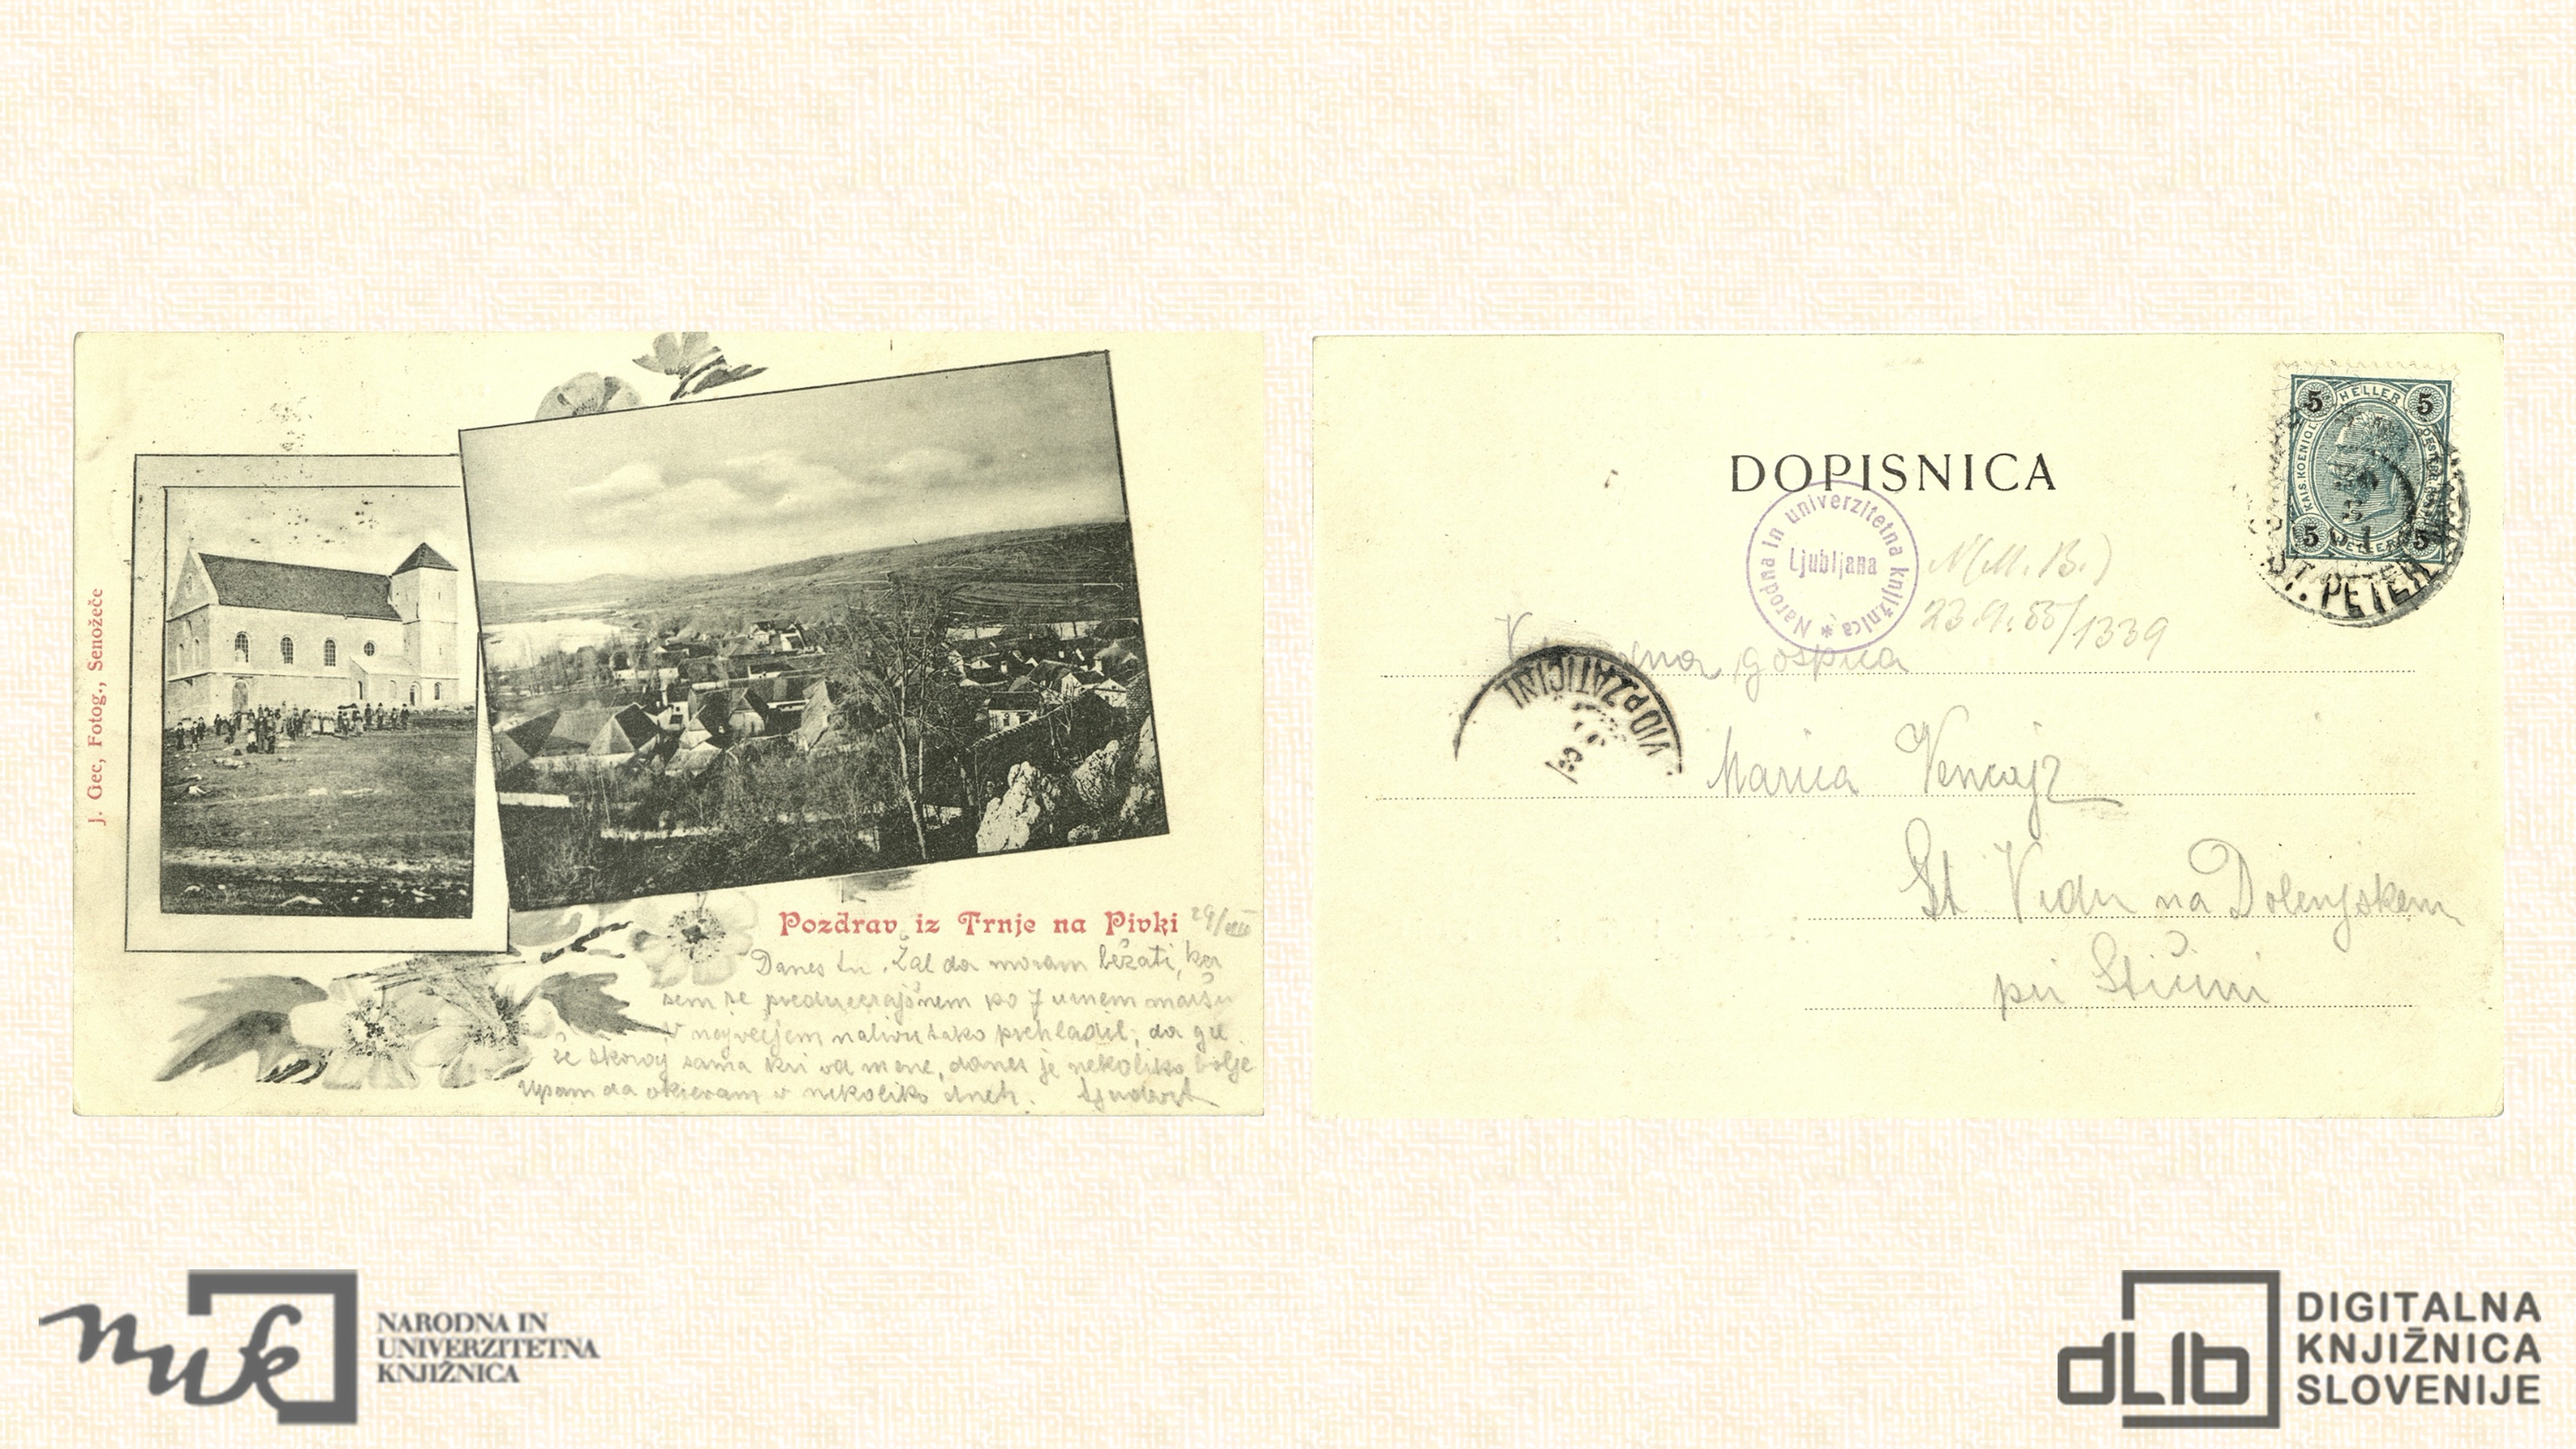 J. Gec, Fotog., Senožeče
Pozdrav iz Trnje na Pivki 29/VIII
Danes tu. Žal da moram bežati, ker
sem se predvčerajšnem po 7 urnem maršu
v največjem nalivu tako prehladil, da gre
še skoraj sama kri od mene, danes je nekoliko bolje
Upam da okrevam v nekoliko dneh.
DOPISNICA
Narodna in univerzitetna knjižnica *
Ljubljana
N(M. B.)
23.9.55/1339
5 HELLER 5
KAIS. KOENIGL.
5 HELLER 5
ST. PETER
gospica
VID P. ZATIČINI
Marica Vencajz
St Vidu na Dolenjskem
pri Stični
nuk
NARODNA IN
UNIVERZITETNA
KNJIŽNICA
dLib
DIGITALNA
KNJIŽNICA
SLOVENIJE